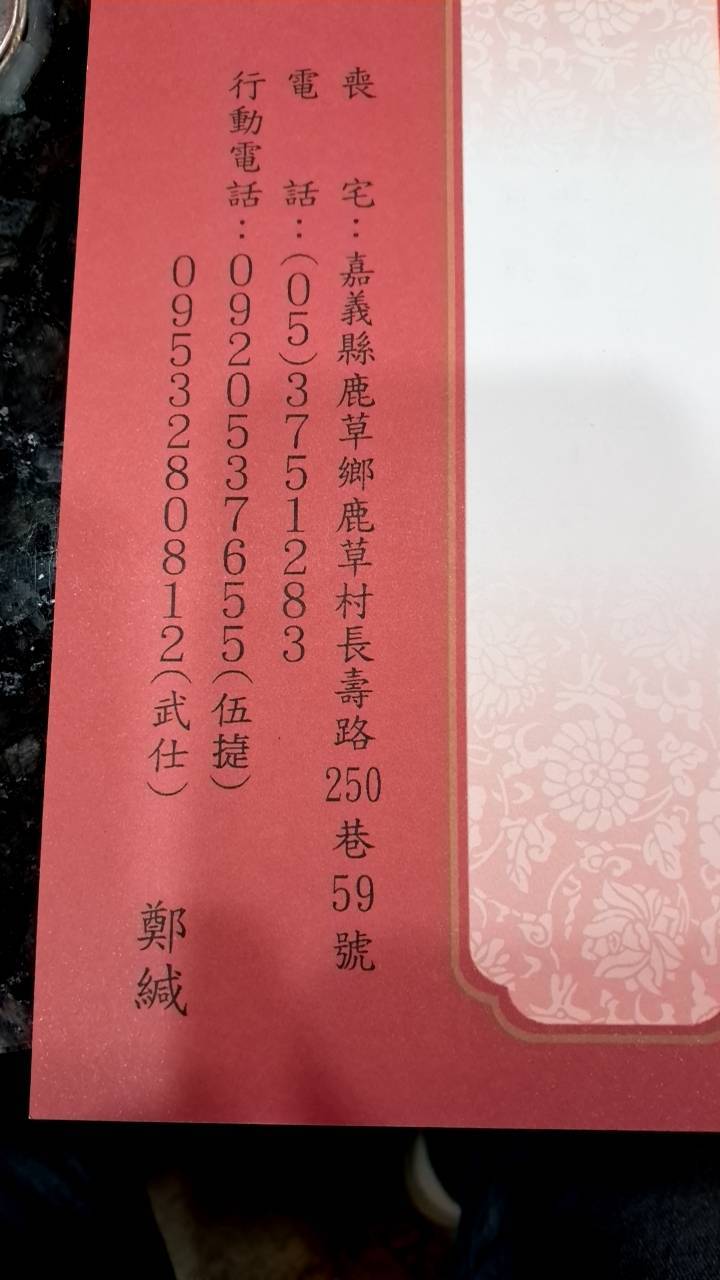 喪宅：嘉義縣鹿草鄉鹿草村長壽路250巷59號
電話：(05)3751283
行動電話：0920537655(伍捷)
0953280812(武仕)
鄭緘